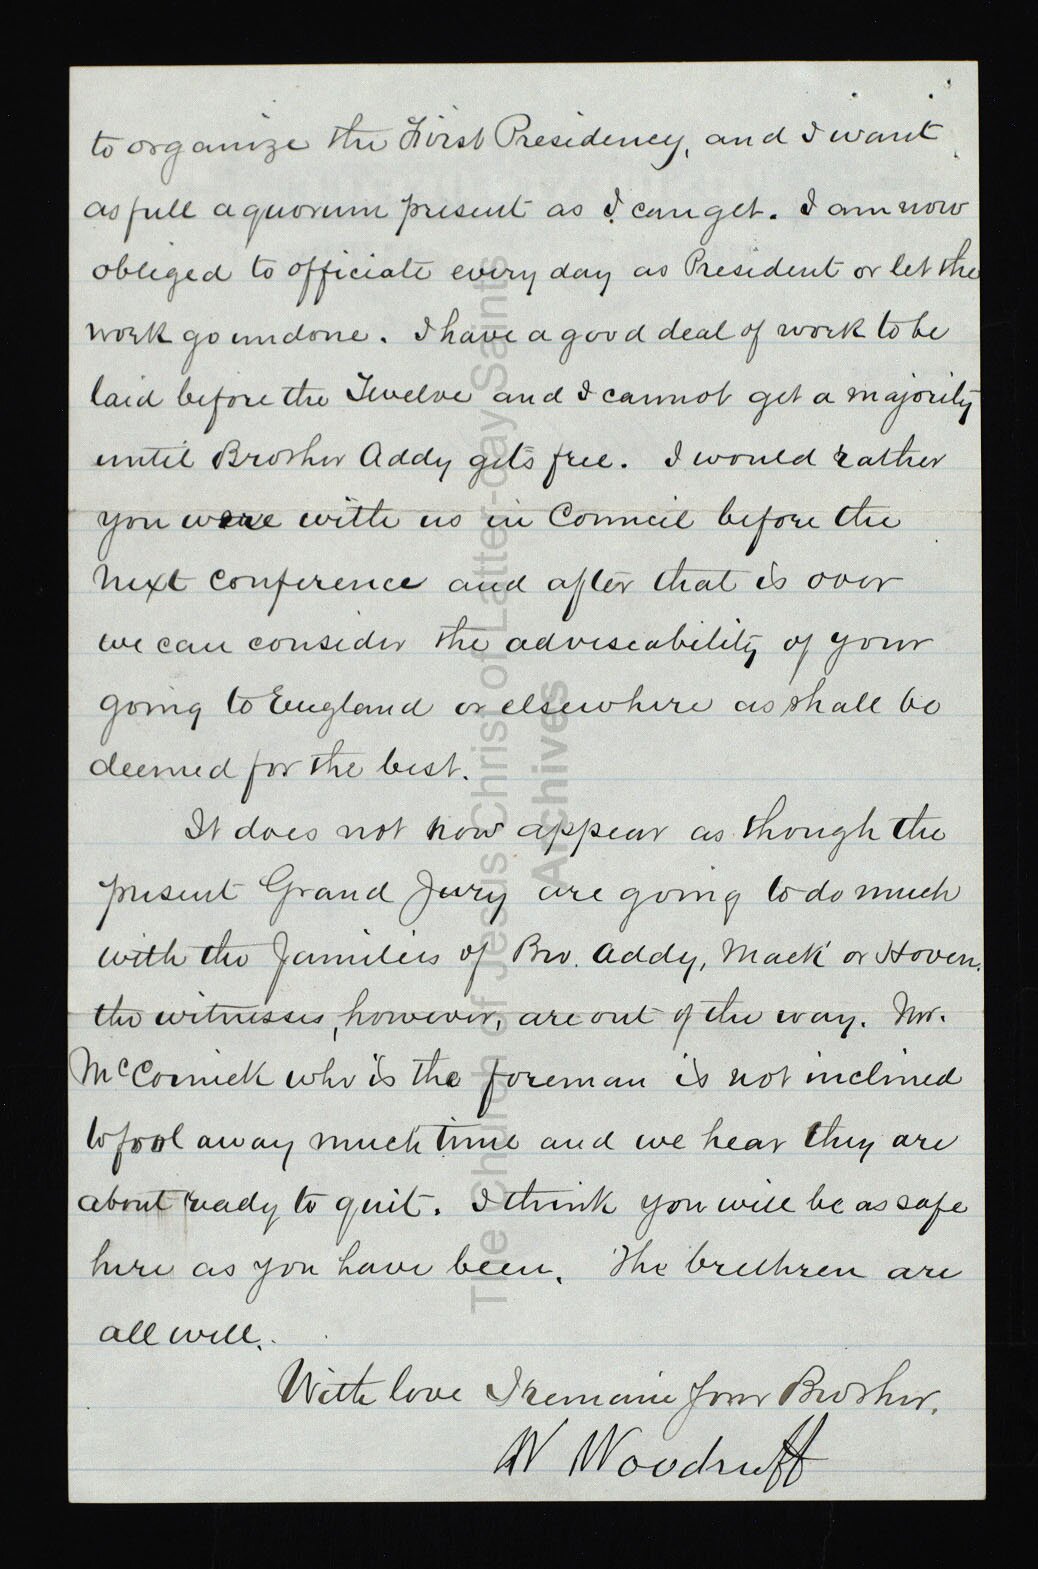 to organize the First Presidency, and I want
as full a quorum present as I can get. I am now
obliged to officiate every day as President or let the
work go undone. I have a good deal of work to be
laid before the Twelve and I cannot get a majority
until Brother Addy gets free. I would rather
you were with us in Council before the
next conference and after that is over
we can consider the adviseability of your
going to England or elsewhere as shall be
deemed for the best.
It does not now appear as though the
present Grand Jury are going to do much
with the families of Bro. Addy, Mack or Hoven.
the witnesses, however, are out of the way. Mr.
McCornick who is the foreman is not inclined
to fool away much time and we hear they are
about ready to quit. I think you will be as safe
here as you have been. The brethren are
all well.
With love I remain Your Brother.
W Woodruff
The Church of Jesus Christ of Latter-day Saints
Archives